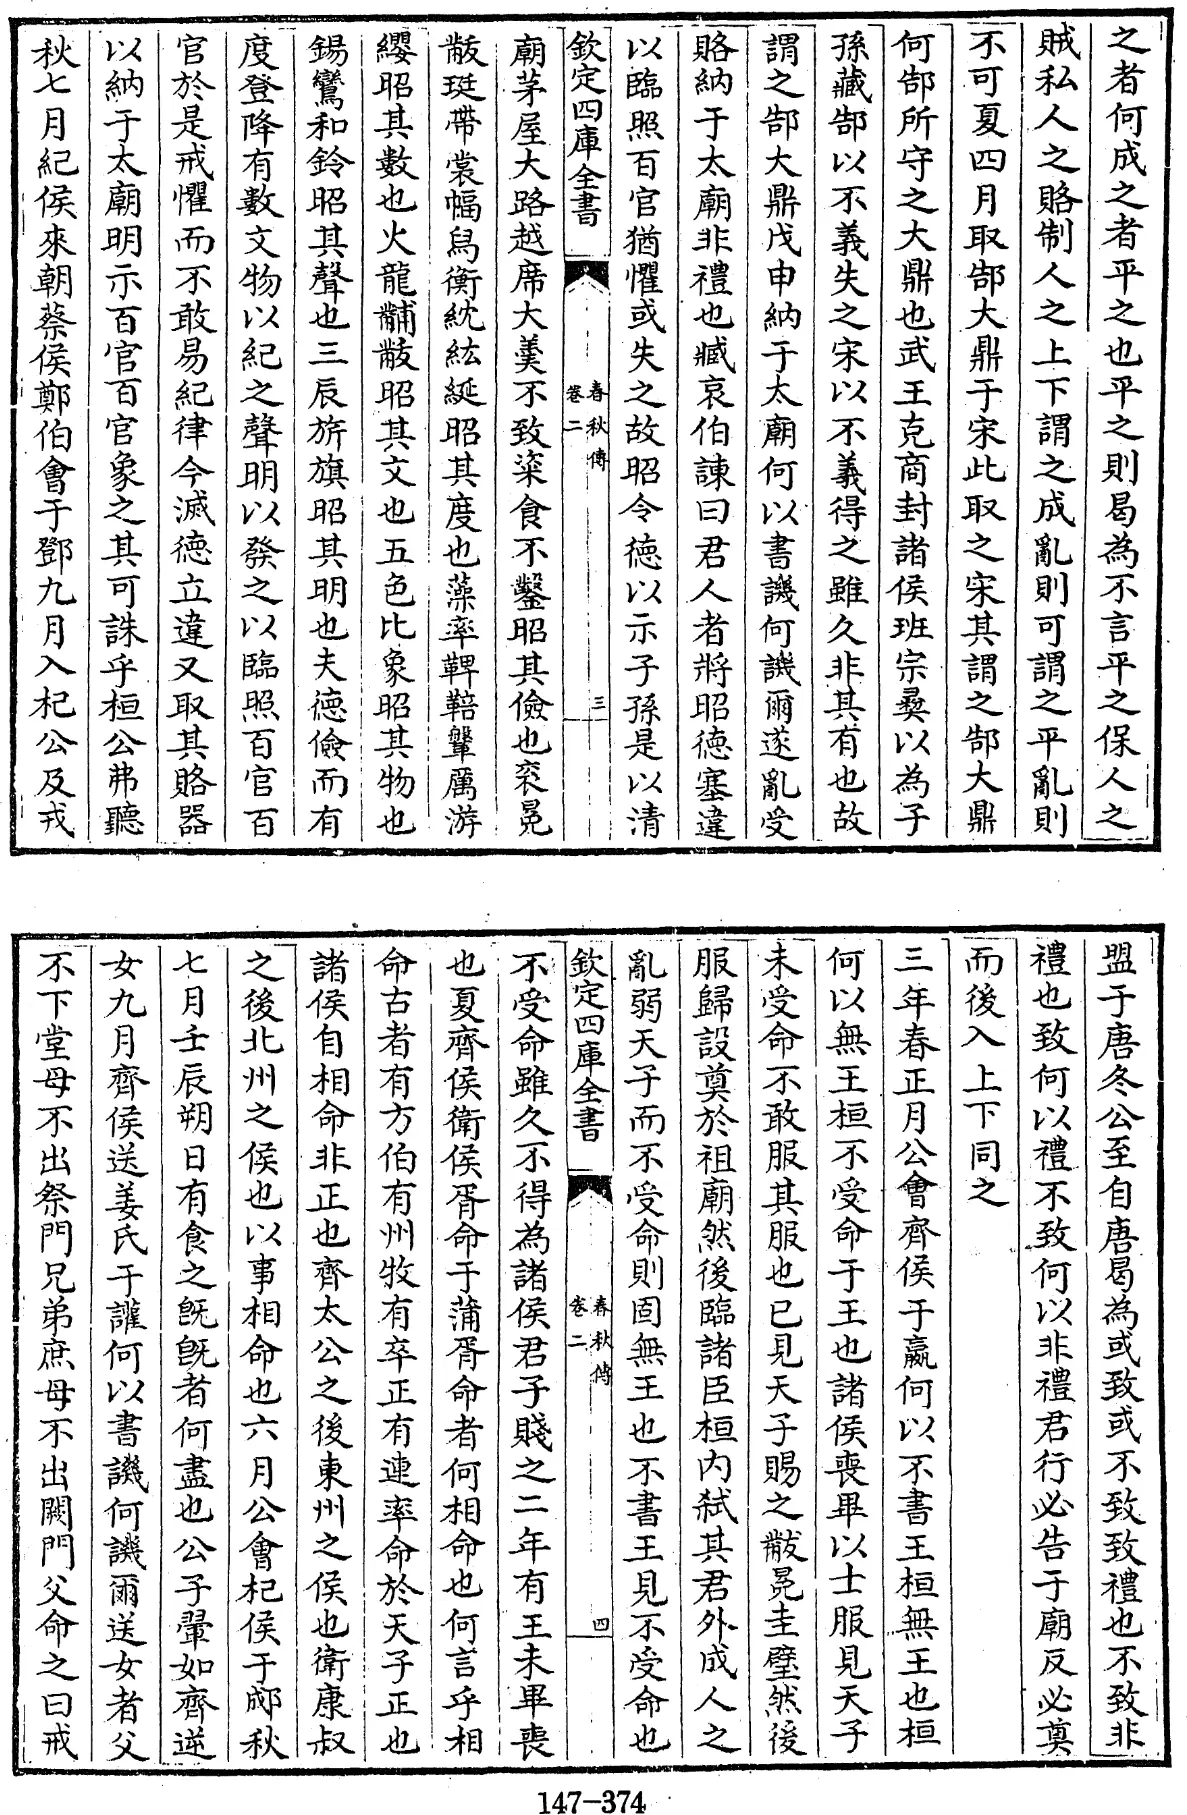 之者何成之者平之也平之則曷為不言平之保人之
賊私人之賂制人之上下謂之成亂則可謂之平亂則
不可夏四月取郜大鼎于宋此取之宋其謂之郜大鼎
何郜所守之大鼎也武王克商封諸侯班宗彝以為子
孫藏郜以不義失之宋以不義得之雖久非其有也故
謂之郜大鼎戊申納于太廟何以書譏何譏爾遂亂受
賂納于太廟非禮也臧哀伯諫曰君人者將昭徳塞違
以臨照百官猶懼或失之故昭令徳以示子孫是以清
欽定四庫全書
春秋傳
卷二
三
廟茅屋大路越席大羹不致粢食不鑿昭其儉也衮冕
黻珽帶裳幅舄衡紞紘綖昭其度也藻率鞞鞛鞶厲游
纓昭其數也火龍黼黻昭其文也五色比象昭其物也
鍚鸞和鈴昭其聲也三辰旂旗昭其明也夫徳儉而有
度登降有數文物以紀之聲明以發之以臨照百官百
官於是戒懼而不敢易紀律今滅徳立違又取其賂器
以納于太廟明示百官百官象之其可誅乎桓公弗聽
秋七月紀侯來朝蔡侯鄭伯會于鄧九月入杞公及戎
盟于唐冬公至自唐曷為或致或不致致禮也不致非
禮也致何以禮不致何以非禮君行必告于廟反必奠
而後入上下同之
三年春正月公會齊侯于嬴何以不書王桓無王也桓
何以無王桓不受命于王也諸侯喪畢以士服見天子
未受命不敢服其服也已見天子賜之黻冕圭璧然後
服歸設奠於祖廟然後臨諸臣桓内弒其君外成人之
亂弱天子而不受命則固無王也不書王見不受命也
欽定四庫全書
春秋傳
卷二
四
不受命雖久不得為諸侯君子賤之二年有王未畢喪
也夏齊侯衛侯胥命于蒲胥命者何相命也何言乎相
命古者有方伯有州牧有卒正有連率命於天子正也
諸侯自相命非正也齊太公之後東州之侯也衛康叔
之後北州之侯也以事相命也六月公會杞侯于郕秋
七月壬辰朔日有食之既既者何盡也公子翬如齊逆
女九月齊侯送姜氏于讙何以書譏何譏爾送女者父
不下堂母不出祭門兄弟庶母不出闕門父命之曰戒
147-374